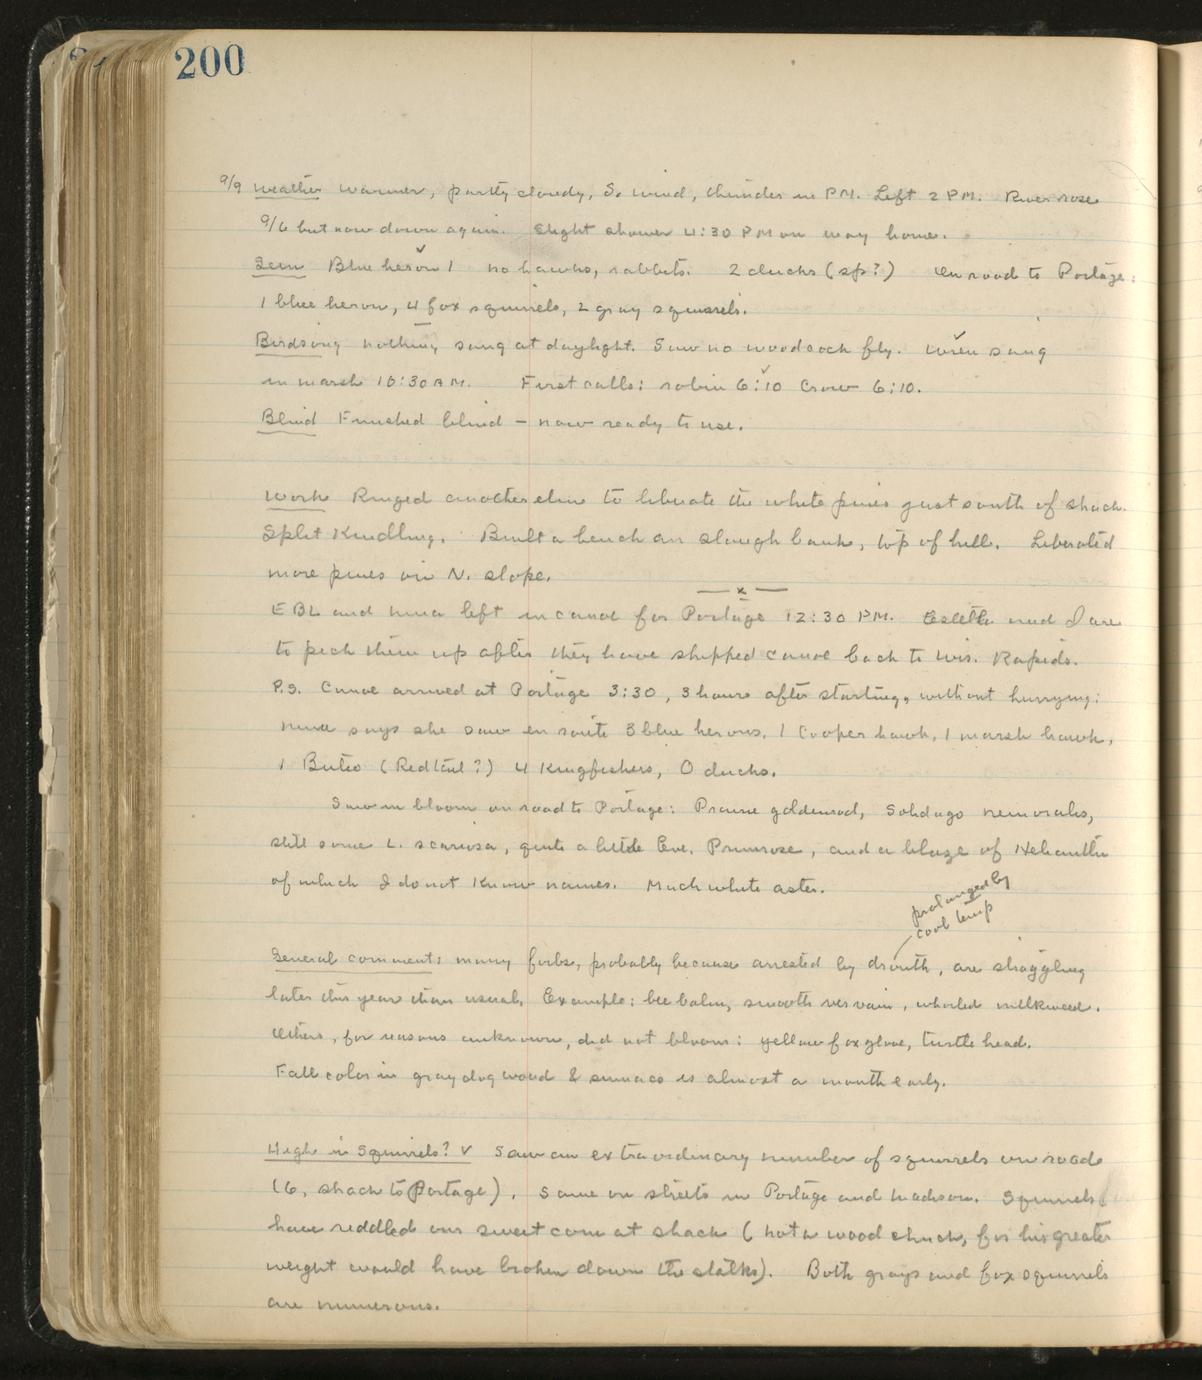 200
9/9 Weather warmer, partly cloudy, So wind, thunder in PM. Left 2 PM. River rose
9/6 but now down again. Slight shower 4:30 PM on way home.
Seen Blue heron 1 no hawks, rabbits. 2 ducks (sp?) On road to Portage:
1 blue heron, 4 fox squirrels, 2 gray squirrels.
Birdsong nothing sang at daylight. Saw no woodcock fly. Wren sang
in marsh 10:30 AM. First calls: robin 6:10 Crow 6:10.
Blind Finished blind – now ready to use.
Work Ringed another elm to liberate the white pines just south of shack.
Split Kindling. Built a bench on slough bank, top of hill. Liberated
more pines on N. slope.
— x —
EBL and Nina left in canoe for Portage 12:30 PM. Estella and I are
to pick them up after they have shipped canoe back to Wis. Rapids.
P.S. Canoe arrived at Portage 3:30, 3 hours after starting, without hurrying;
Nina says she saw en route 3 blue herons, 1 Cooper hawk, 1 marsh hawk,
1 Buteo (Redtail?) 4 Kingfishers, 0 ducks.
Saw in bloom on road to Portage: Prairie goldenrod, Solidago nemoralis,
still some L. scariosa, quite a little Eve. Primrose, and a blaze of Helianthi
of which I do not Know names. Much white aster.
prolonged by
cool temp
General comment: many forbs, probably because arrested by drouth, are straggling
later this year than usual. Example: bee balm, smooth vervain, whorled milkweed.
Others, for reasons unknown, did not bloom: yellow foxglove, turtle head.
Fall color in gray dogwood & sumacs is almost a month early.
High in Squirrels? √ Saw an extraordinary number of squirrels on road
(6, shack to Portage). Same on streets in Portage and Madison. Squirrels
have riddled our sweet corn at shack (not a woodchuck, for his greater
weight would have broken down the stalks). Both grays and fox squirrels
are numerous.